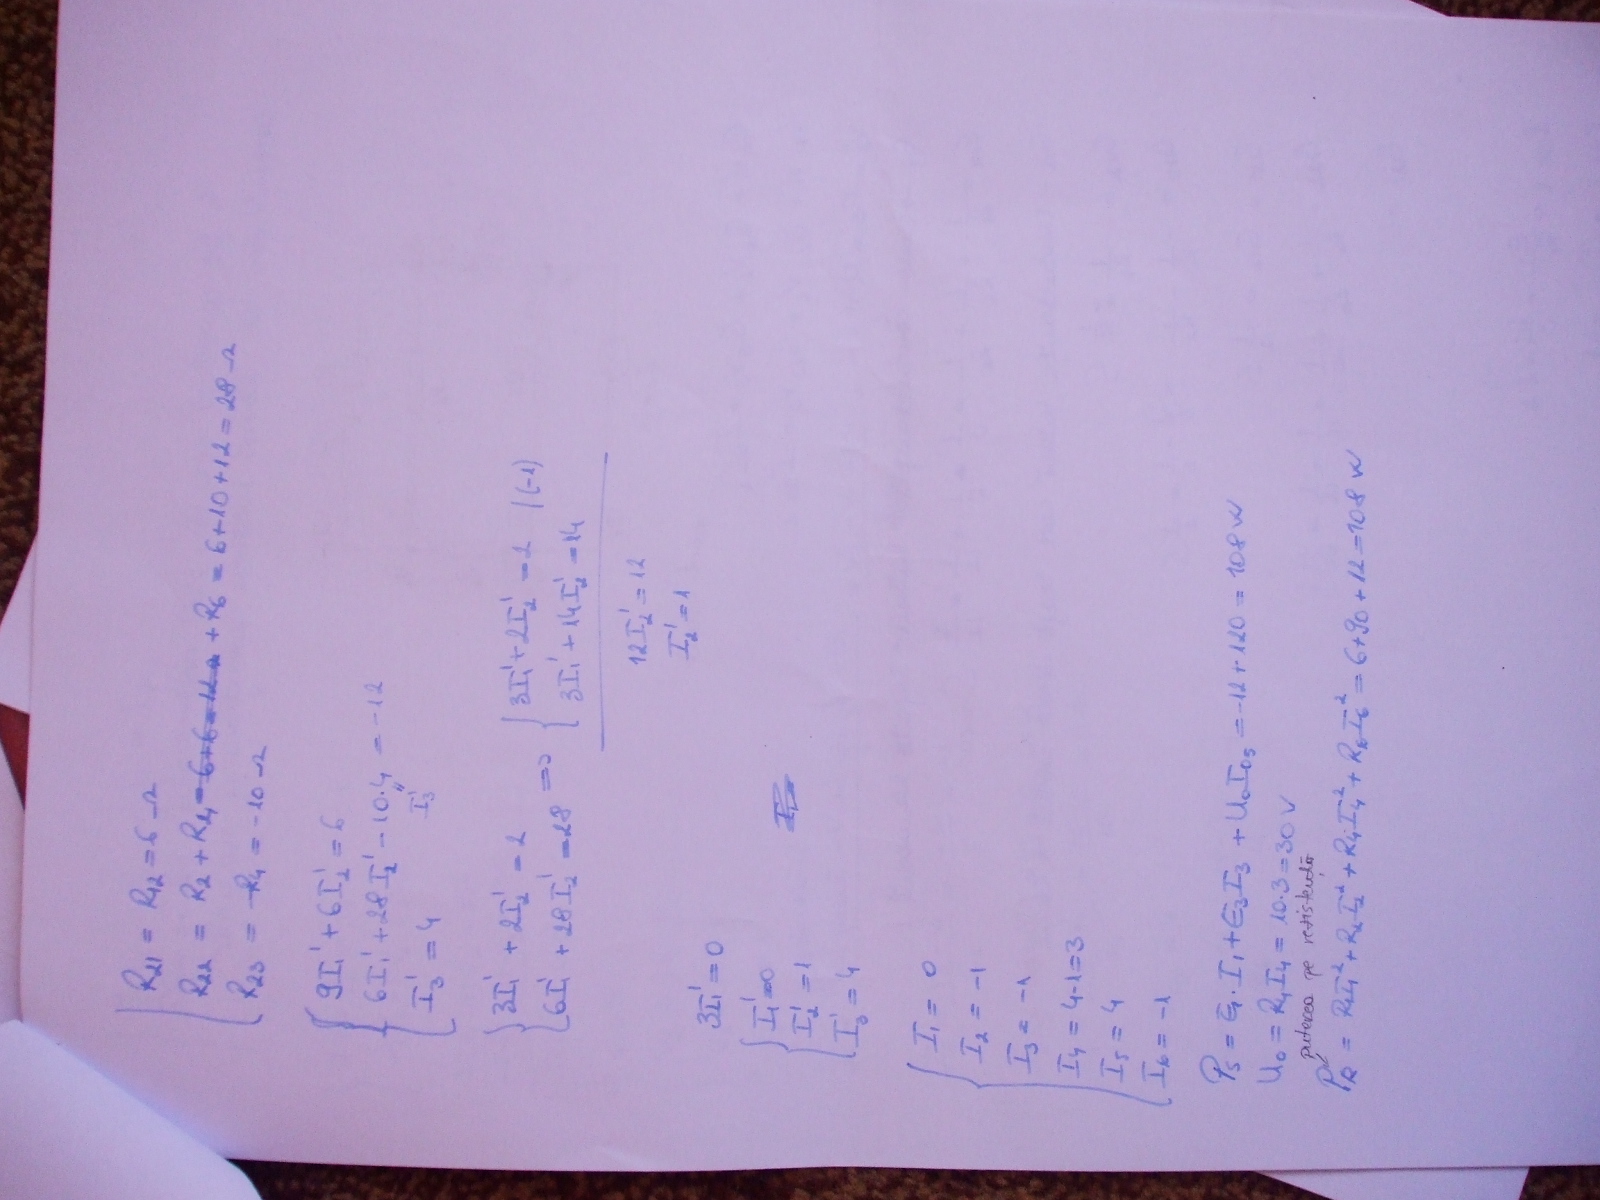 R₂₁ = R₁₂ = 6 Ω
R₂₂ = R₂ + R₄ + R₆ = 6+10+12 = 28 Ω
R₂₃ = -R₄ = -10 Ω
9I₁' + 6I₂' = 6
6I₁' + 28I₂' - 10·4 = -12
I₃' = 4 I₃'
3I₁' + 2I₂' = 2
6I₁' + 28I₂' = 28
=> 3I₁' + 2I₂' = 2 |(-1)
3I₁' + 14I₂' = 14
12I₂' = 12
I₂' = 1
3I₁' = 0
I₁' = 0
I₂' = 1
I₃' = 4
I₁ = 0
I₂ = -1
I₃ = -1
I₄ = 4-1 = 3
I₅ = 4
I₆ = -1
P_S = E₁·I₁ + E₃I₃ + U₀I₀₅ = -12 + 120 = 108 W
U₀ = R₄I₄ = 10·3 = 30 V
puterea pe rezistență
P_R = R₁I₁² + R₂I₂² + R₄I₄² + R₆I₆² = 6+90+12 = 108 W